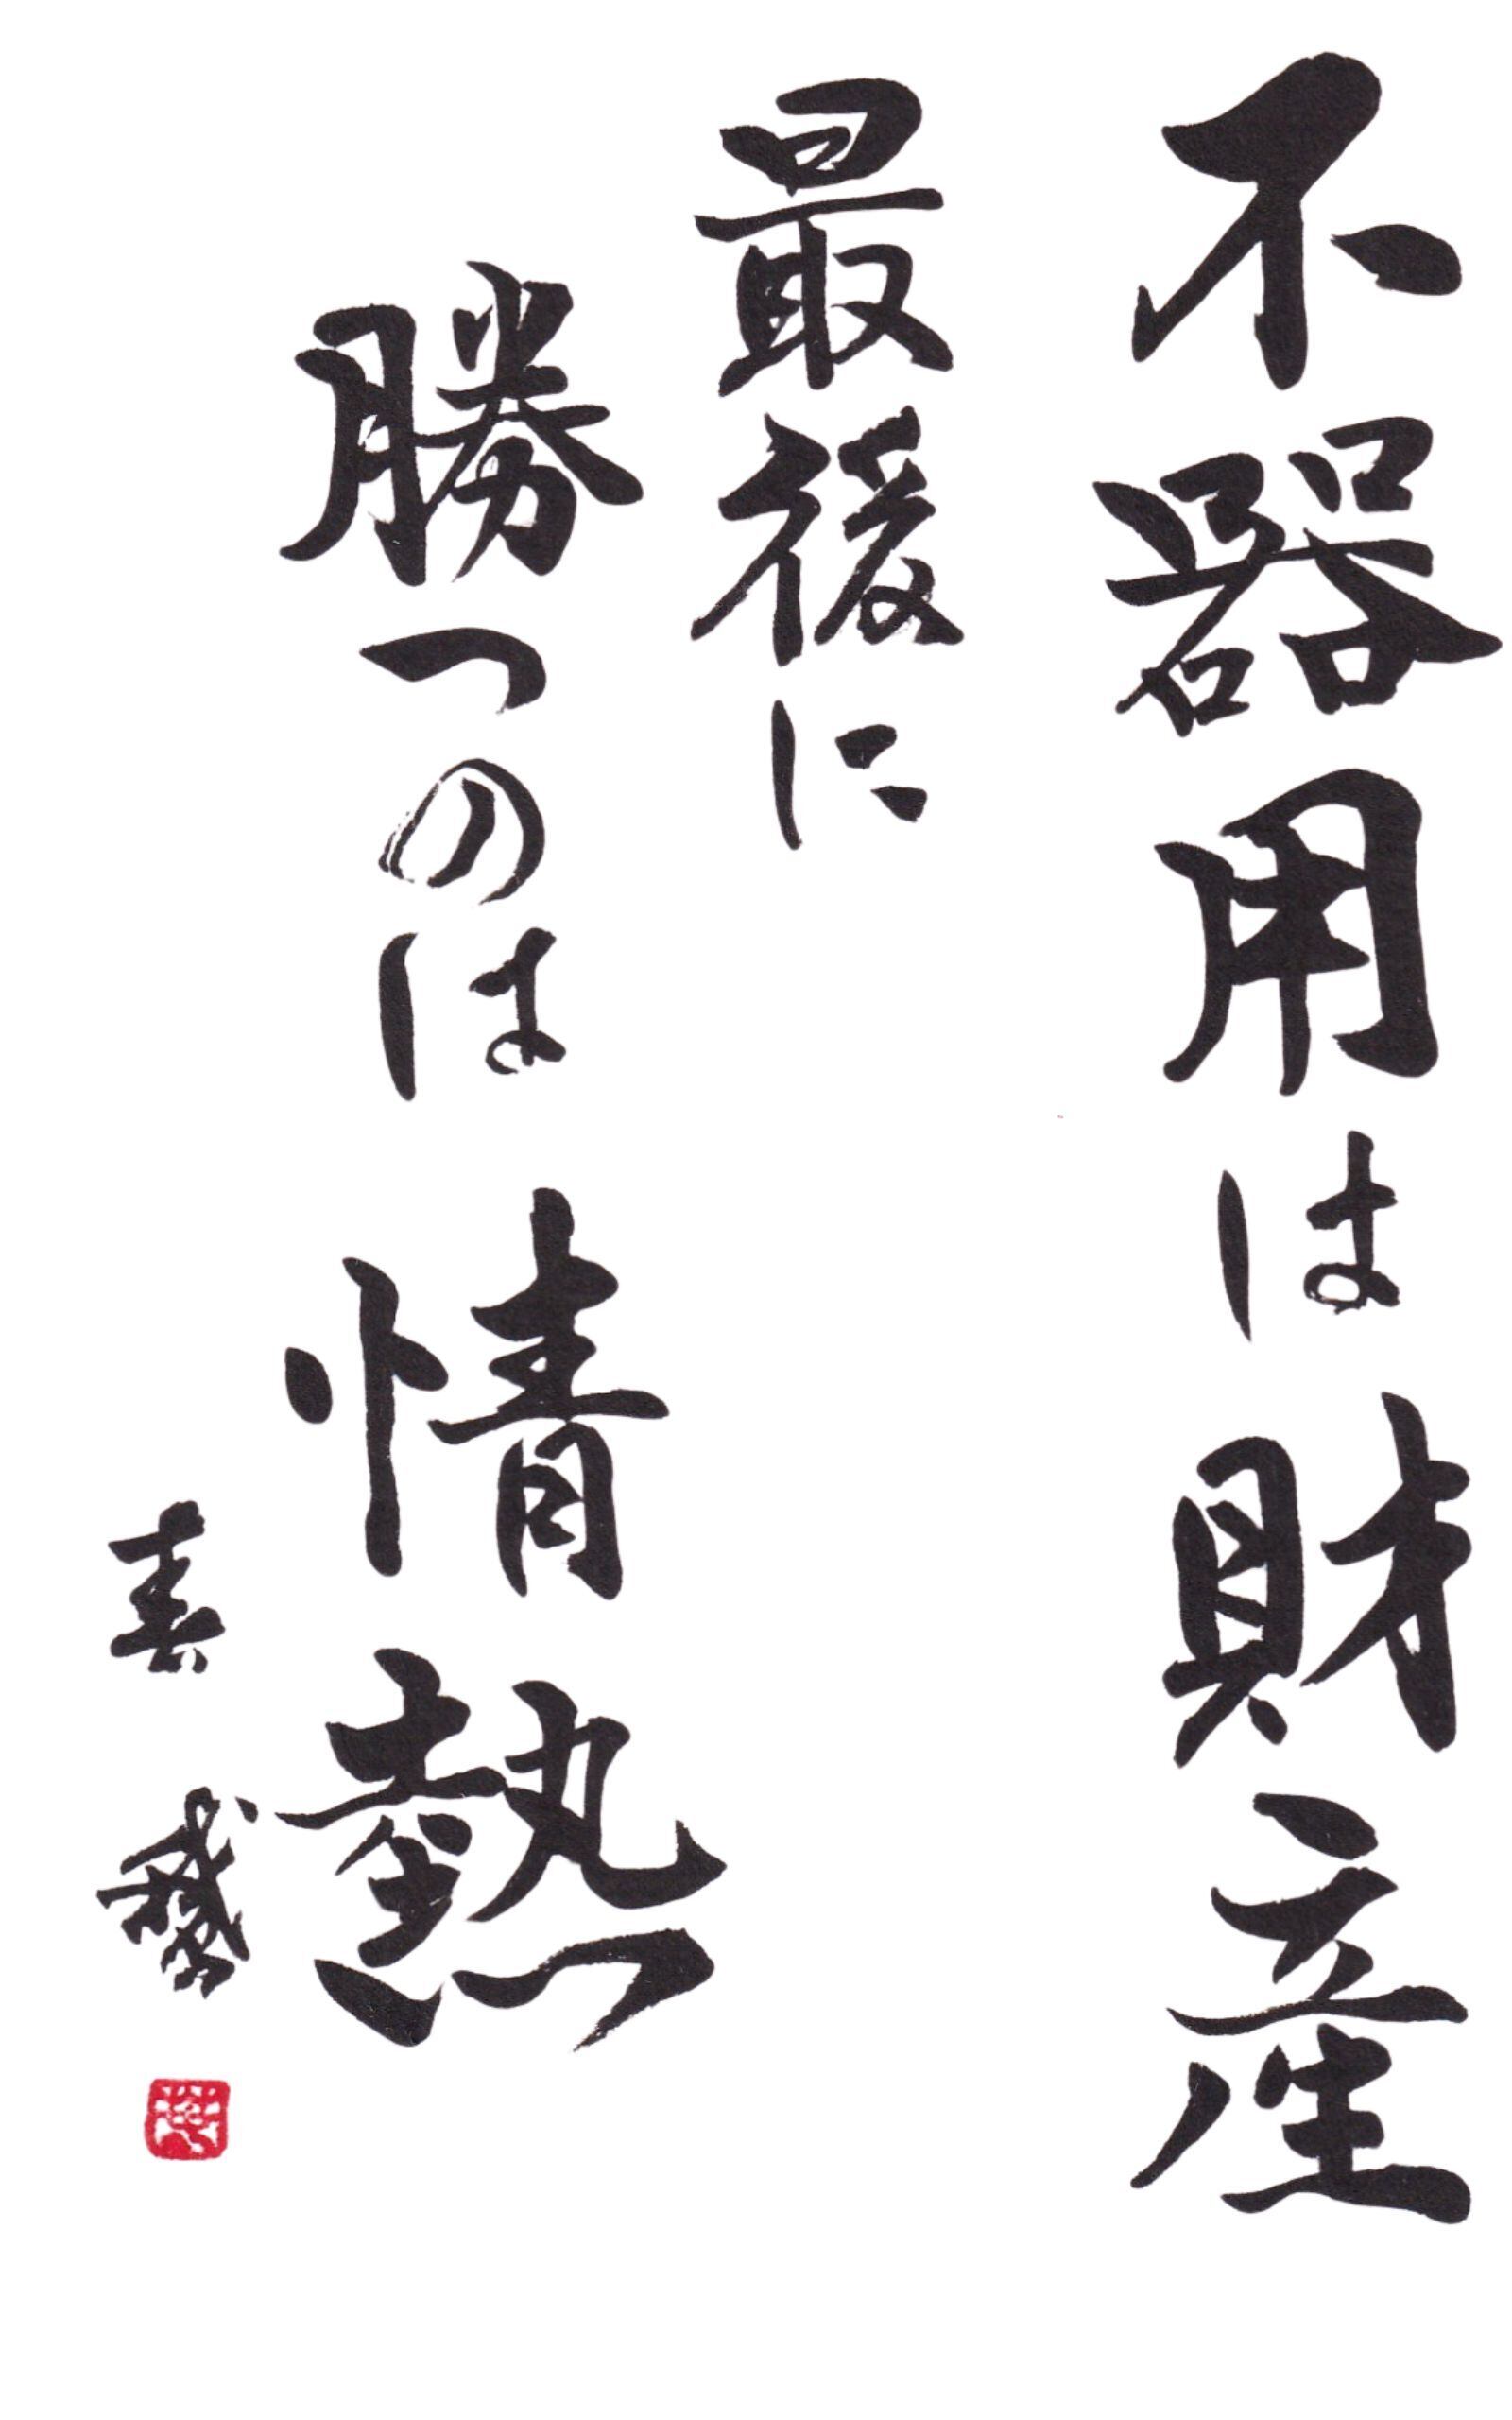 不器用は財産
最後に
勝つのは 情熱